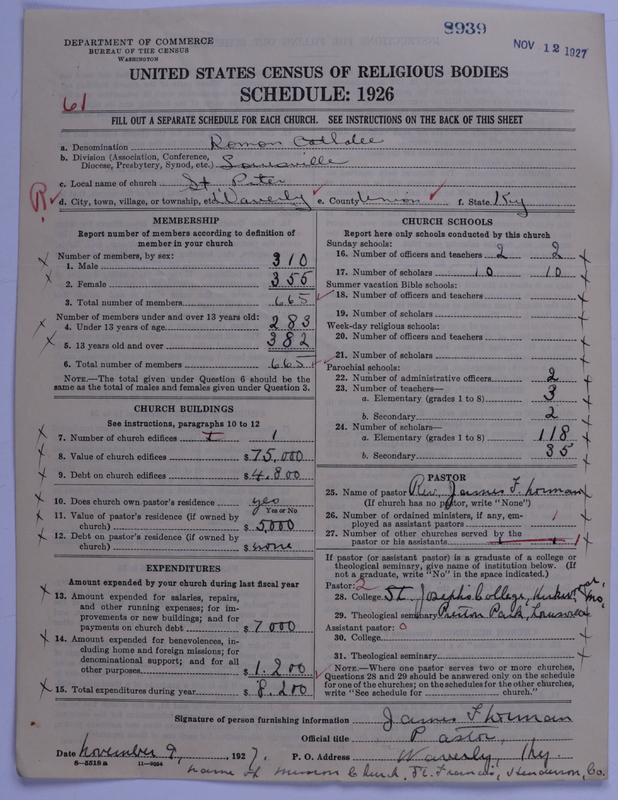 8939
NOV 12 1927
DEPARTMENT OF COMMERCE
BUREAU OF THE CENSUS
WASHINGTON
UNITED STATES CENSUS OF RELIGIOUS BODIES
SCHEDULE: 1926
61
FILL OUT A SEPARATE SCHEDULE FOR EACH CHURCH. SEE INSTRUCTIONS ON THE BACK OF THIS SHEET
a. Denomination Roman
b. Division (Association, Conference,
Diocese, Presbytery, Synod, etc.) Louisville
c. Local name of church St. Peter
R d. City, town, village, or township, etc. Waverly e. County Union f. State Ky
MEMBERSHIP
Report number of members according to definition of
member in your church
Number of members, by sex:
1. Male 310
2. Female 355
3. Total number of members 665
Number of members under and over 13 years old:
4. Under 13 years of age 283
5. 13 years old and over 382
6. Total number of members 665
NOTE.—The total given under Question 6 should be
same as the total of males and females given under Question 3.
CHURCH BUILDINGS
See instructions, paragraphs 10 to 12
7. Number of church edifices 1 1
8. Value of church edifices $75,000
9. Debt on church edifices $4,800
10. Does church own pastor's residence yes
Yes or No
11. Value of pastor's residence (if owned by
church) $5,000
12. Debt on pastor's residence (if owned by
church) $none
EXPENDITURES
Amount expended by your church during last fiscal year
13. Amount expended for salaries, repairs,
and other running expenses; for im-
provements or new buildings; and for
payments on church debt $7000
14. Amount expended for benevolences, in-
cluding home and foreign missions; for
denominational support; and for all
other purposes $1,200
15. Total expenditures during year $8,200
CHURCH SCHOOLS
Report here only schools conducted by this church
Sunday schools:
16. Number of officers and teachers 2 2
17. Number of scholars 10 10
Summer vacation Bible schools:
18. Number of officers and teachers
19. Number of scholars
Week-day religious schools:
20. Number of officers and teachers
21. Number of scholars
Parochial schools:
22. Number of administrative officers 2
23. Number of teachers—
a. Elementary (grades 1 to 8) 3
b. Secondary 2
24. Number of scholars—
a. Elementary (grades 1 to 8) 118
b. Secondary 35
PASTOR
25. Name of pastor Rev. James F. Norman
(If church has no pastor, write "None")
26. Number of ordained ministers, if any, em-
ployed as assistant pastors 1
27. Number of other churches served by the
pastor or his assistants 1 1
If pastor (or assistant pastor) is a graduate of a college or
theological seminary, give name of institution below. (If
not a graduate, write "No" in the space indicated.)
Pastor: 2
28. College St. Joseph's College, Mo.
29. Theological seminary Preston Park, Louisville
Assistant pastor: 0
30. College
31. Theological seminary
NOTE.—Where one pastor serves two or more churches,
Questions 28 and 29 should be answered only on the schedule
for one of the churches; on the schedules for the other churches,
write "See schedule for church."
Signature of person furnishing information James F Norman
Official title Pastor,
Date November 9, 1927. P. O. Address Waverly, Ky.
8—5518a 11—9054
Name of Mission Church, St. Francis, Henderson, Co.